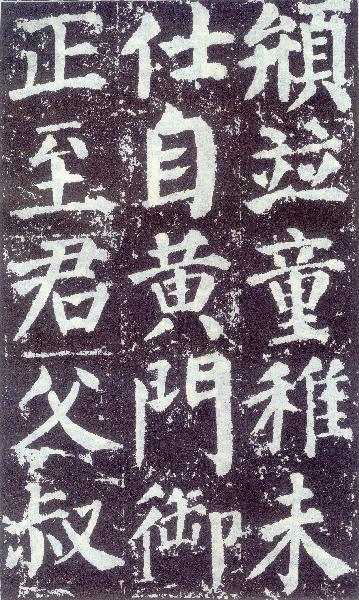 頩並童稚未
仕自黄門御
正至君父叔